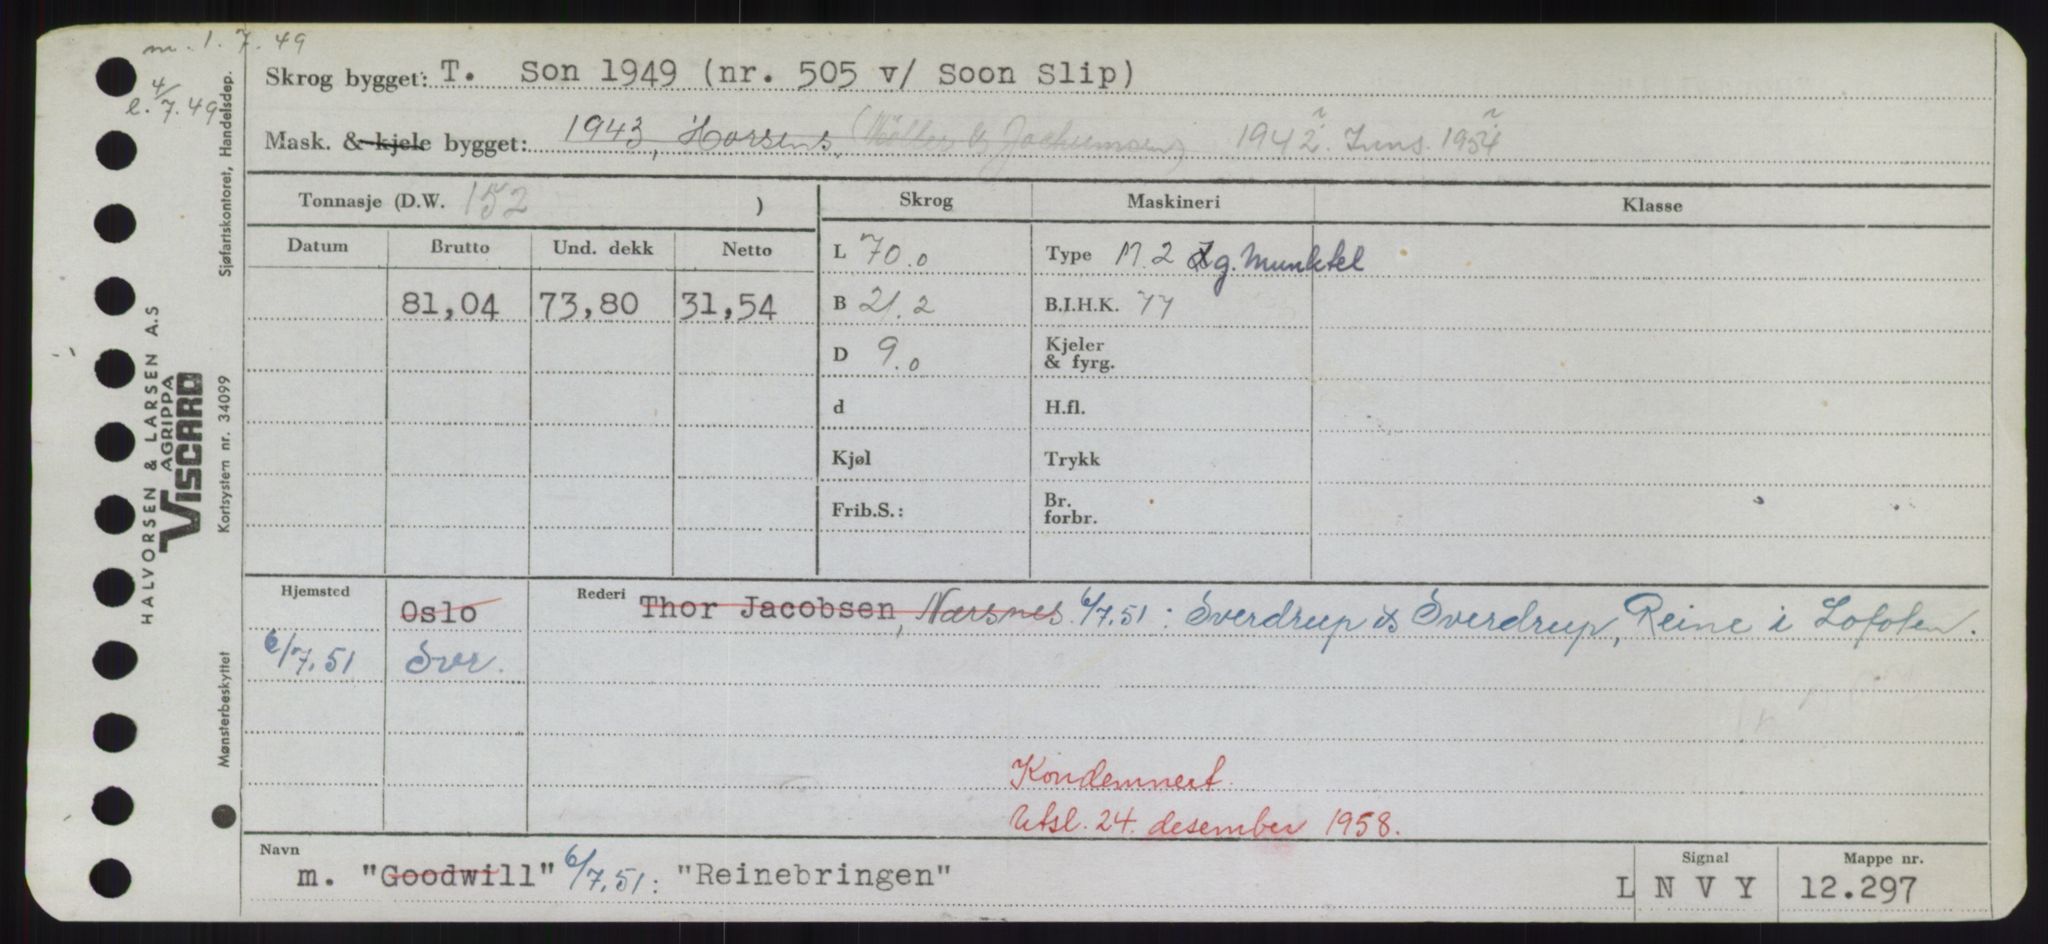 m. 1. 7. 49
e. 4/7. 49
Skrog bygget: T. Son 1949 (nr. 505 v/ Soon Slip)
Mask. & kjele bygget: 1943, Horsens, (Møller & Jochumsen) 1942. Inns. 1954
Tonnasje (D.W. 152 )
Skrog Maskineri Klasse
Datum Brutto Und. dekk Netto
81,04 73,80 31,54
L 70.0
B 21.2
D 9.0
d
Kjøl
Frib.S.:
Type M. 2 Sg. Munktel
B.I.H.K. 77
Kjeler
& fyrg.
H.fl.
Trykk
Br.
forbr.
Hjemsted Oslo
6/7.51 Svr.
Rederi Thor Jacobsen, Nærsnes. 6/7.51: Sverdrup & Sverdrup, Reine i Lofoten.
Kondemnert.
Utsl. 24. desember 1958.
Navn
m. "Goodwill" 6/7.51: "Reinebringen"
Signal
L N V Y
Mappe nr.
12.297
HALVORSEN & LARSEN A.S
AGRIPPA
VISCARD
Mønsterbeskyttet Kortsystem nr. 34099 Sjøfartskontoret, Handelsdep.